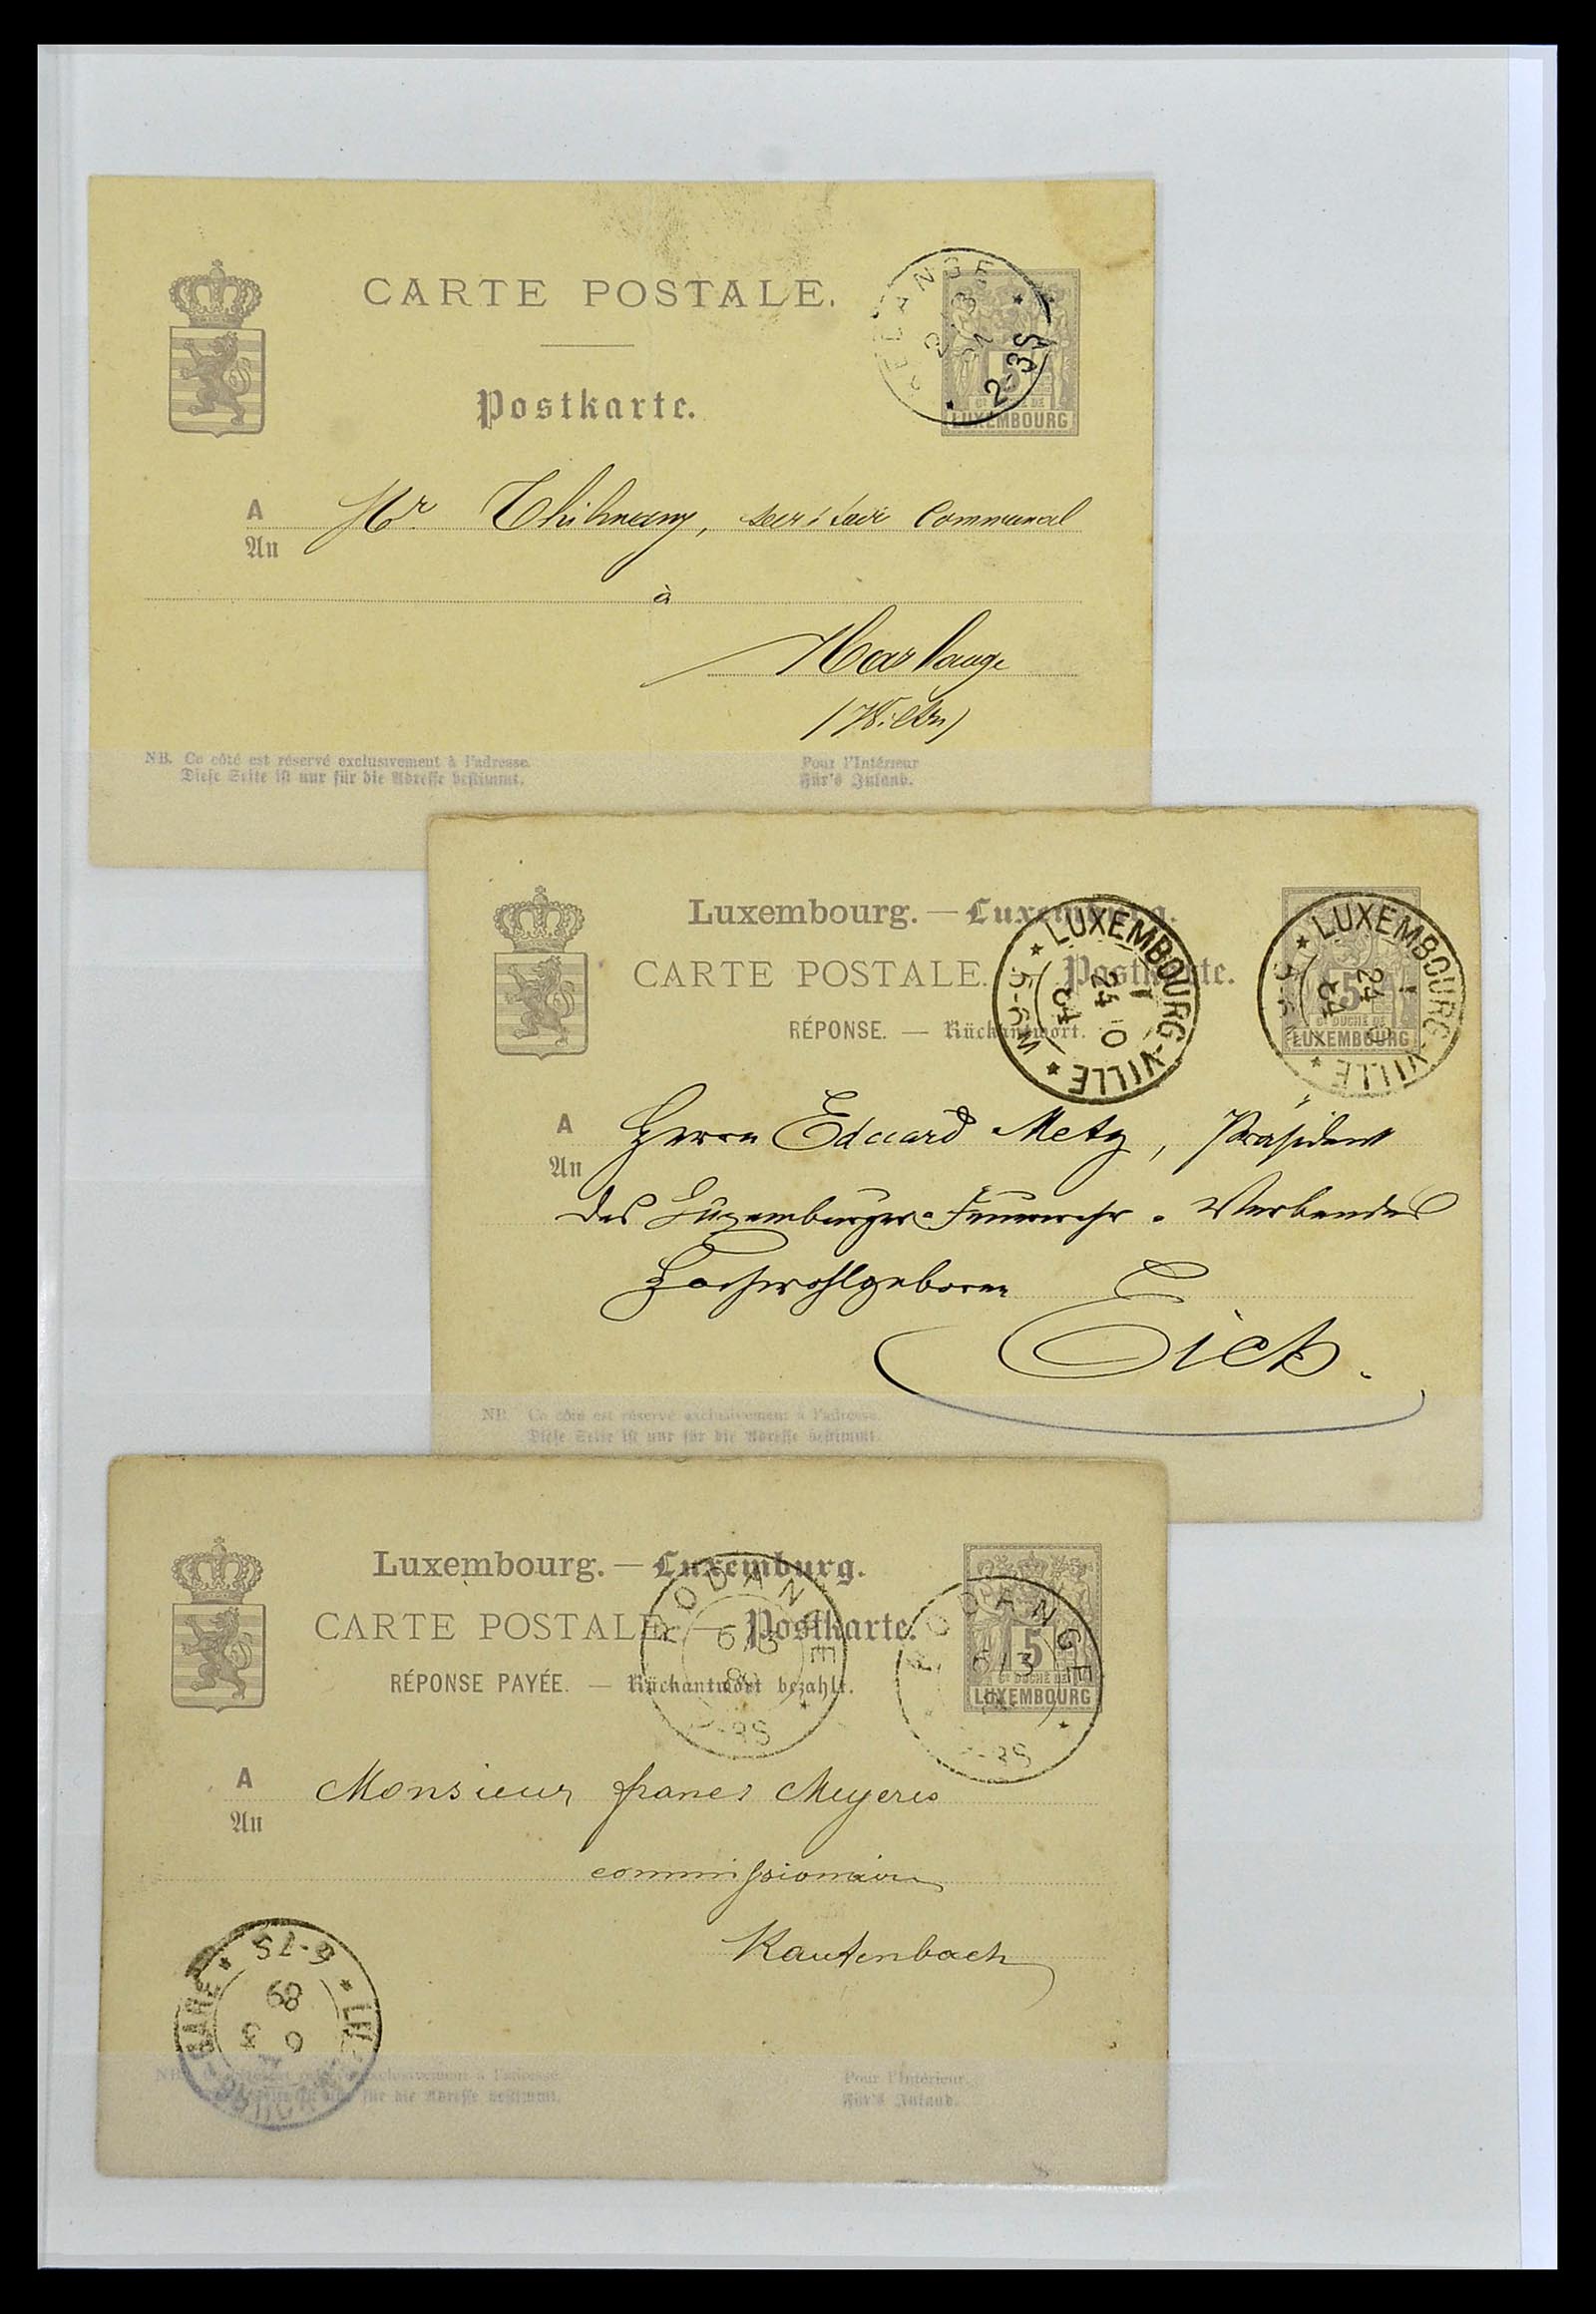 CARTE POSTALE.
Postkarte.
5
LUXEMBOURG
2-3S
A Mr Thilmany, Communal
An
à
Harlange
(Wiltz)
NB. Ce côté est réservé exclusivement à l'adresse.
Diese Seite ist nur für die Adresse bestimmt.
Pour l'Intérieur
Für's Inland.
Luxembourg. — Luxemburg.
CARTE POSTALE. Postkarte.
RÉPONSE. — Rückantwort.
LUXEMBOURG-VILLE
24 10
84
5-6
LUXEMBOURG-VILLE
24
84
5
Gd DUCHÉ DE
LUXEMBOURG
A Herrn Eduard Metz, Präsident
An
des Luxemburger Feuerwehr-Verbandes
Hochwohlgeboren
Eich.
NB. Ce côté est réservé exclusivement à l'adresse.
Diese Seite ist nur für die Adresse bestimmt.
Luxembourg. — Luxemburg.
CARTE POSTALE. — Postkarte.
RÉPONSE PAYÉE. — Rückantwort bezahlt.
RODANGE
6/3
RODANGE
6/3
5
Gd DUCHÉ DE
LUXEMBOURG
A Monsieur Meyers
An
commissionaire
Kautenbach
LUXEMBOURG-GARE
6 3
89
6-7S
NB. Ce côté est réservé exclusivement à l'adresse.
Diese Seite ist nur für die Adresse bestimmt.
Pour l'Intérieur.
Für's Inland.